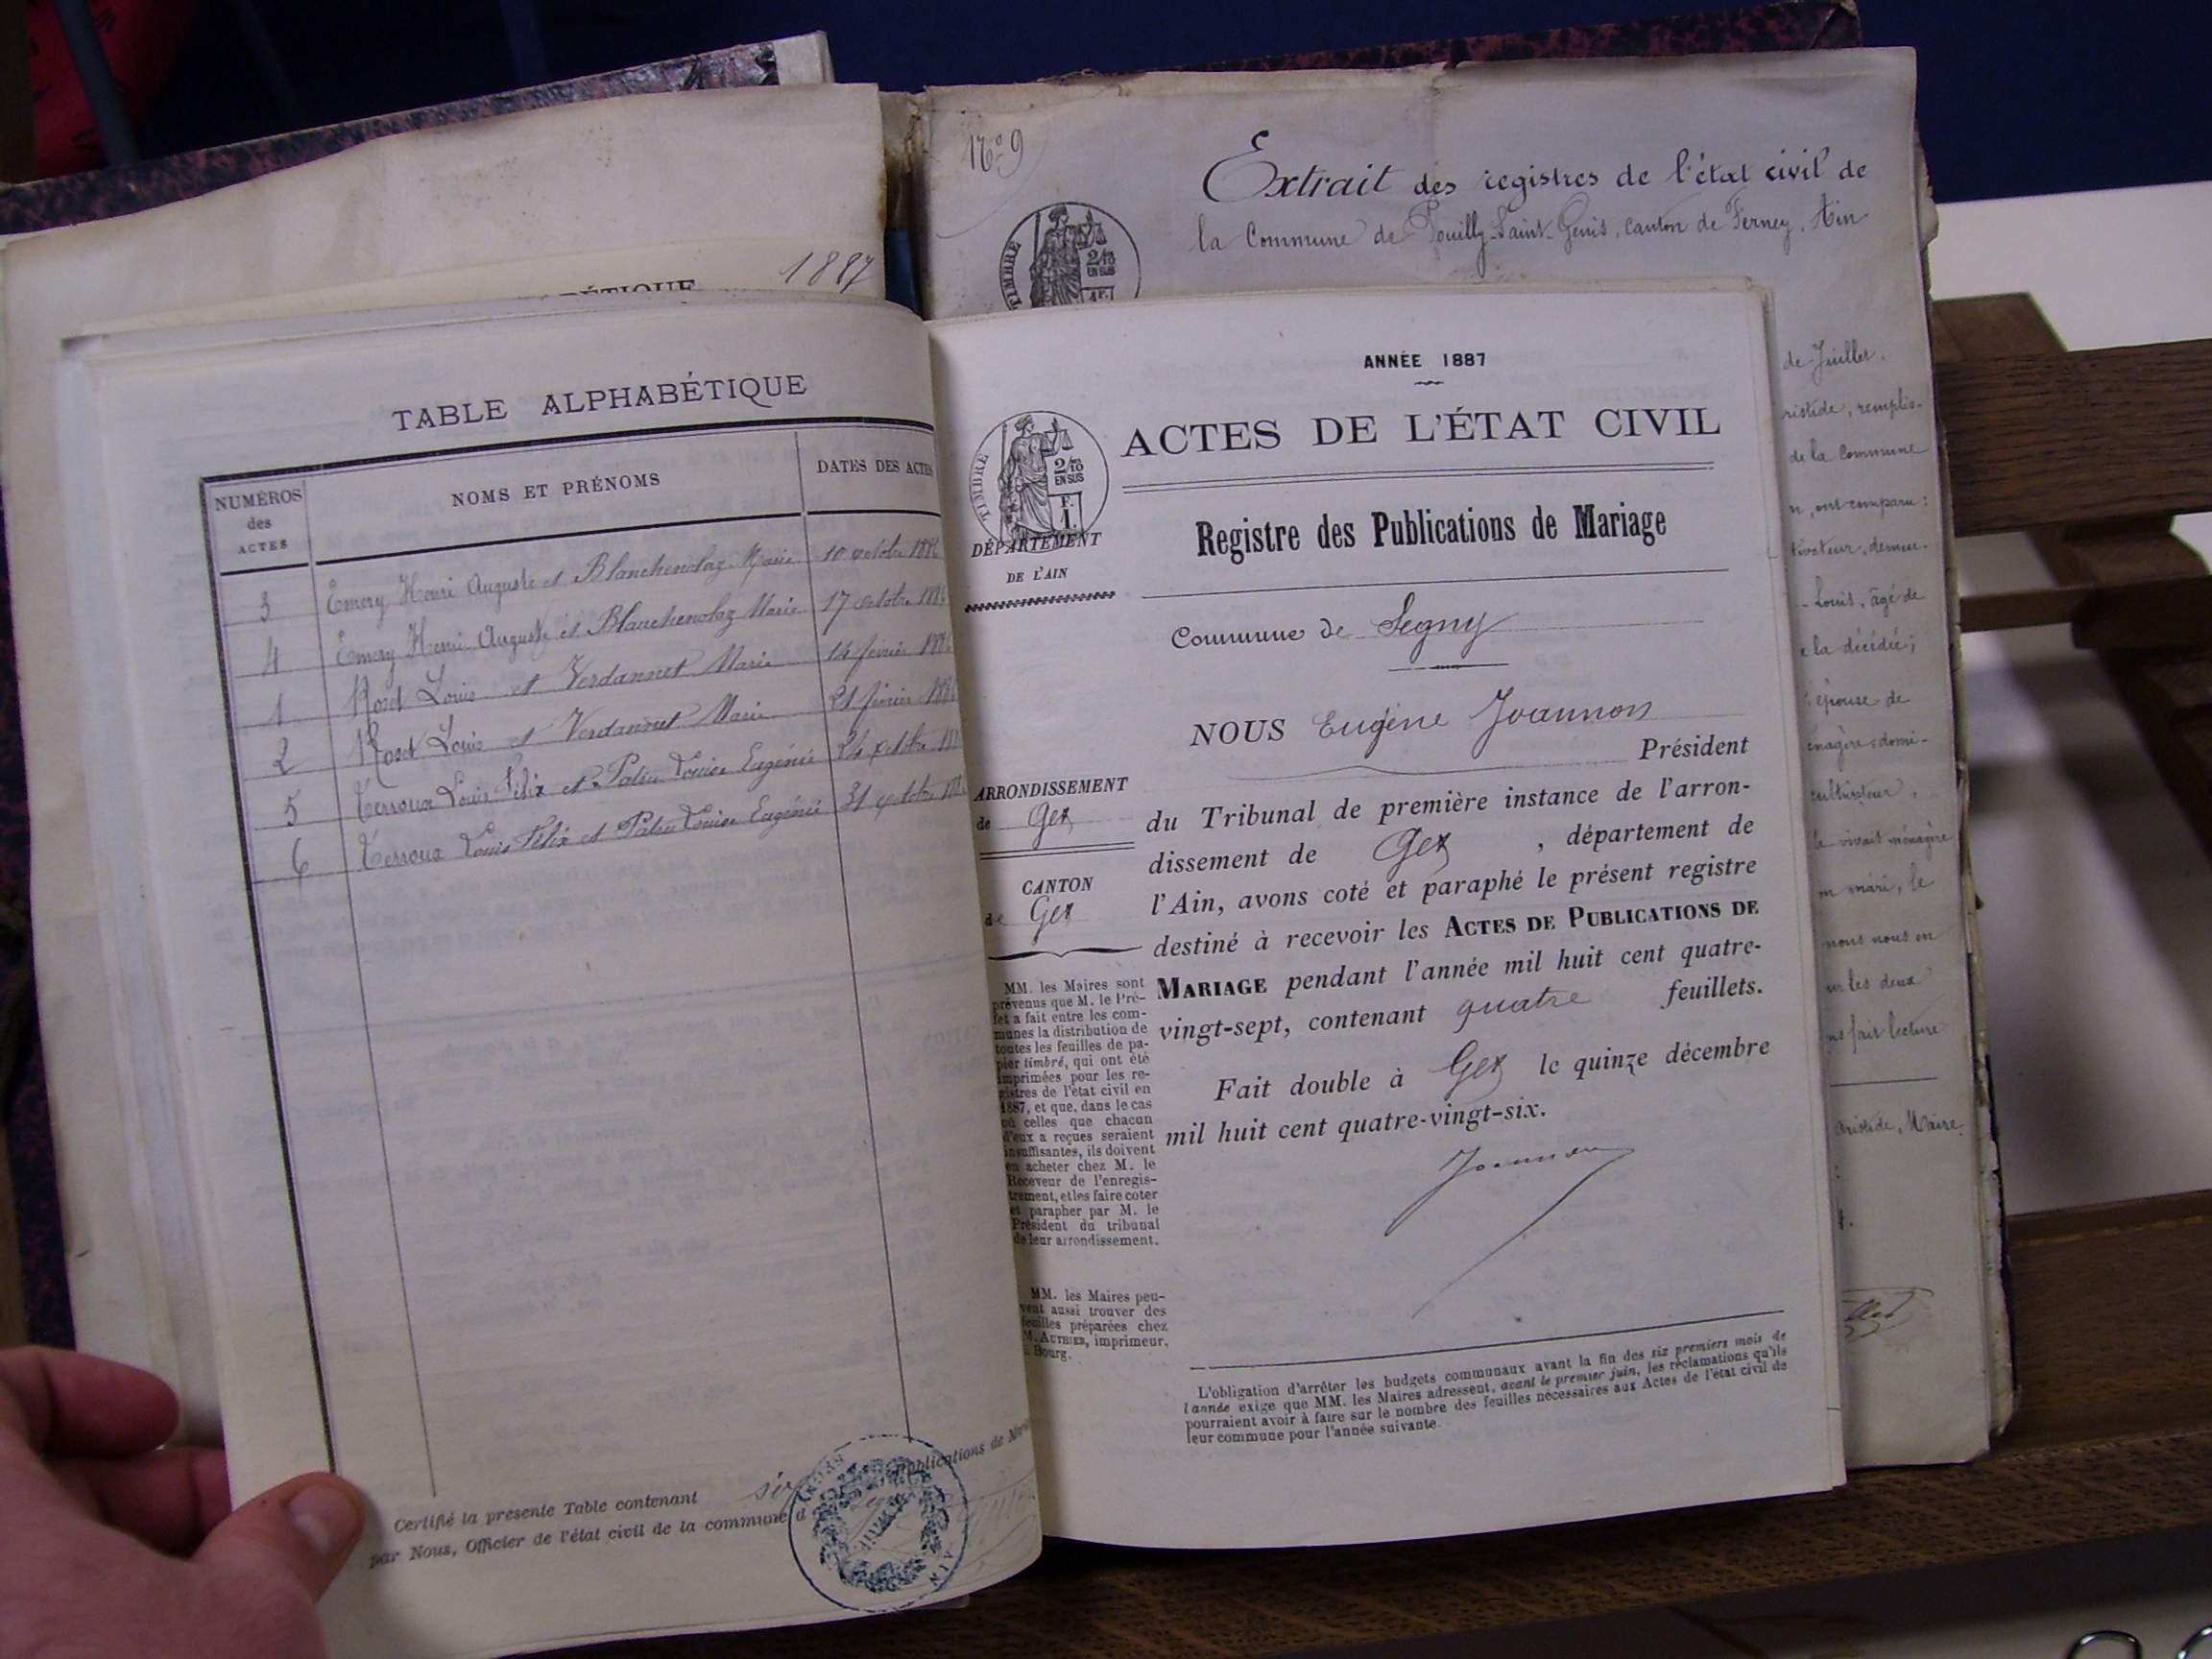 1887
TABLE ALPHABÉTIQUE
NUMÉROS des ACTES
NOMS ET PRÉNOMS
DATES DES ACTES
3 Emery Henri Auguste et Blanchenolaz Marie 10 octobre
4 Emery Henri Auguste et Blanchenolaz Marie 17 octobre
1 Roset Louis et Verdannet Marie 14 février
2 Roset Louis et Verdannet Marie 21 février
5 Terroux Louis Félix et Louise Eugénie 24 octobre
6 Terroux Louis Félix et Louise Eugénie 31 octobre
Certifié la présente Table contenant six Publications de
par Nous, Officier de l'état civil de la commune d
AIN
N° 9
Extrait des registres de l'état civil de
la Commune de Pouilly-Saint-Genis, canton de Ferney, Ain
TIMBRE
2/10
EN SUS
1 F.
ANNÉE 1887
ACTES DE L'ÉTAT CIVIL
TIMBRE
2/10
EN SUS
F.
1.
DÉPARTEMENT
DE L'AIN
Registre des Publications de Mariage
Commune de Segny
NOUS Eugène Joannon
Président
ARRONDISSEMENT
de Gex
CANTON
de Gex
du Tribunal de première instance de l'arron-
dissement de Gex , département de
l'Ain, avons coté et paraphé le présent registre
destiné à recevoir les ACTES DE PUBLICATIONS DE
MARIAGE pendant l'année mil huit cent quatre-
vingt-sept, contenant quatre feuillets.
Fait double à Gex le quinze décembre
mil huit cent quatre-vingt-six.
Joannon
MM. les Maires sont
prévenus que M. le Pré-
fet a fait entre les com-
munes la distribution de
toutes les feuilles de pa-
pier timbré, qui ont été
imprimées pour les re-
gistres de l'état civil en
1887, et que, dans le cas
où celles que chacun
d'eux a reçues seraient
insuffisantes, ils doivent
en acheter chez M. le
Receveur de l'enregis-
trement, et les faire coter
et parapher par M. le
Président du tribunal
de leur arrondissement.
MM. les Maires peu-
vent aussi trouver des
feuilles préparées chez
M. AUTHIER, imprimeur,
à Bourg.
L'obligation d'arrêter les budgets communaux avant la fin des six premiers mois de
l'année exige que MM. les Maires adressent, avant le premier juin, les réclamations qu'ils
pourraient avoir à faire sur le nombre des feuilles nécessaires aux Actes de l'état civil de
leur commune pour l'année suivante.
de Juillet.
ristide, remplis-
de la Commune
n, ont comparu:
tivateur, demeu-
Louis, âgé de
la décédée;
épouse de
énagère domi-
cultivateur,
vivait ménagère
on mari, le
nous nous en
les deux
fait lecture
Aristide, Maire.